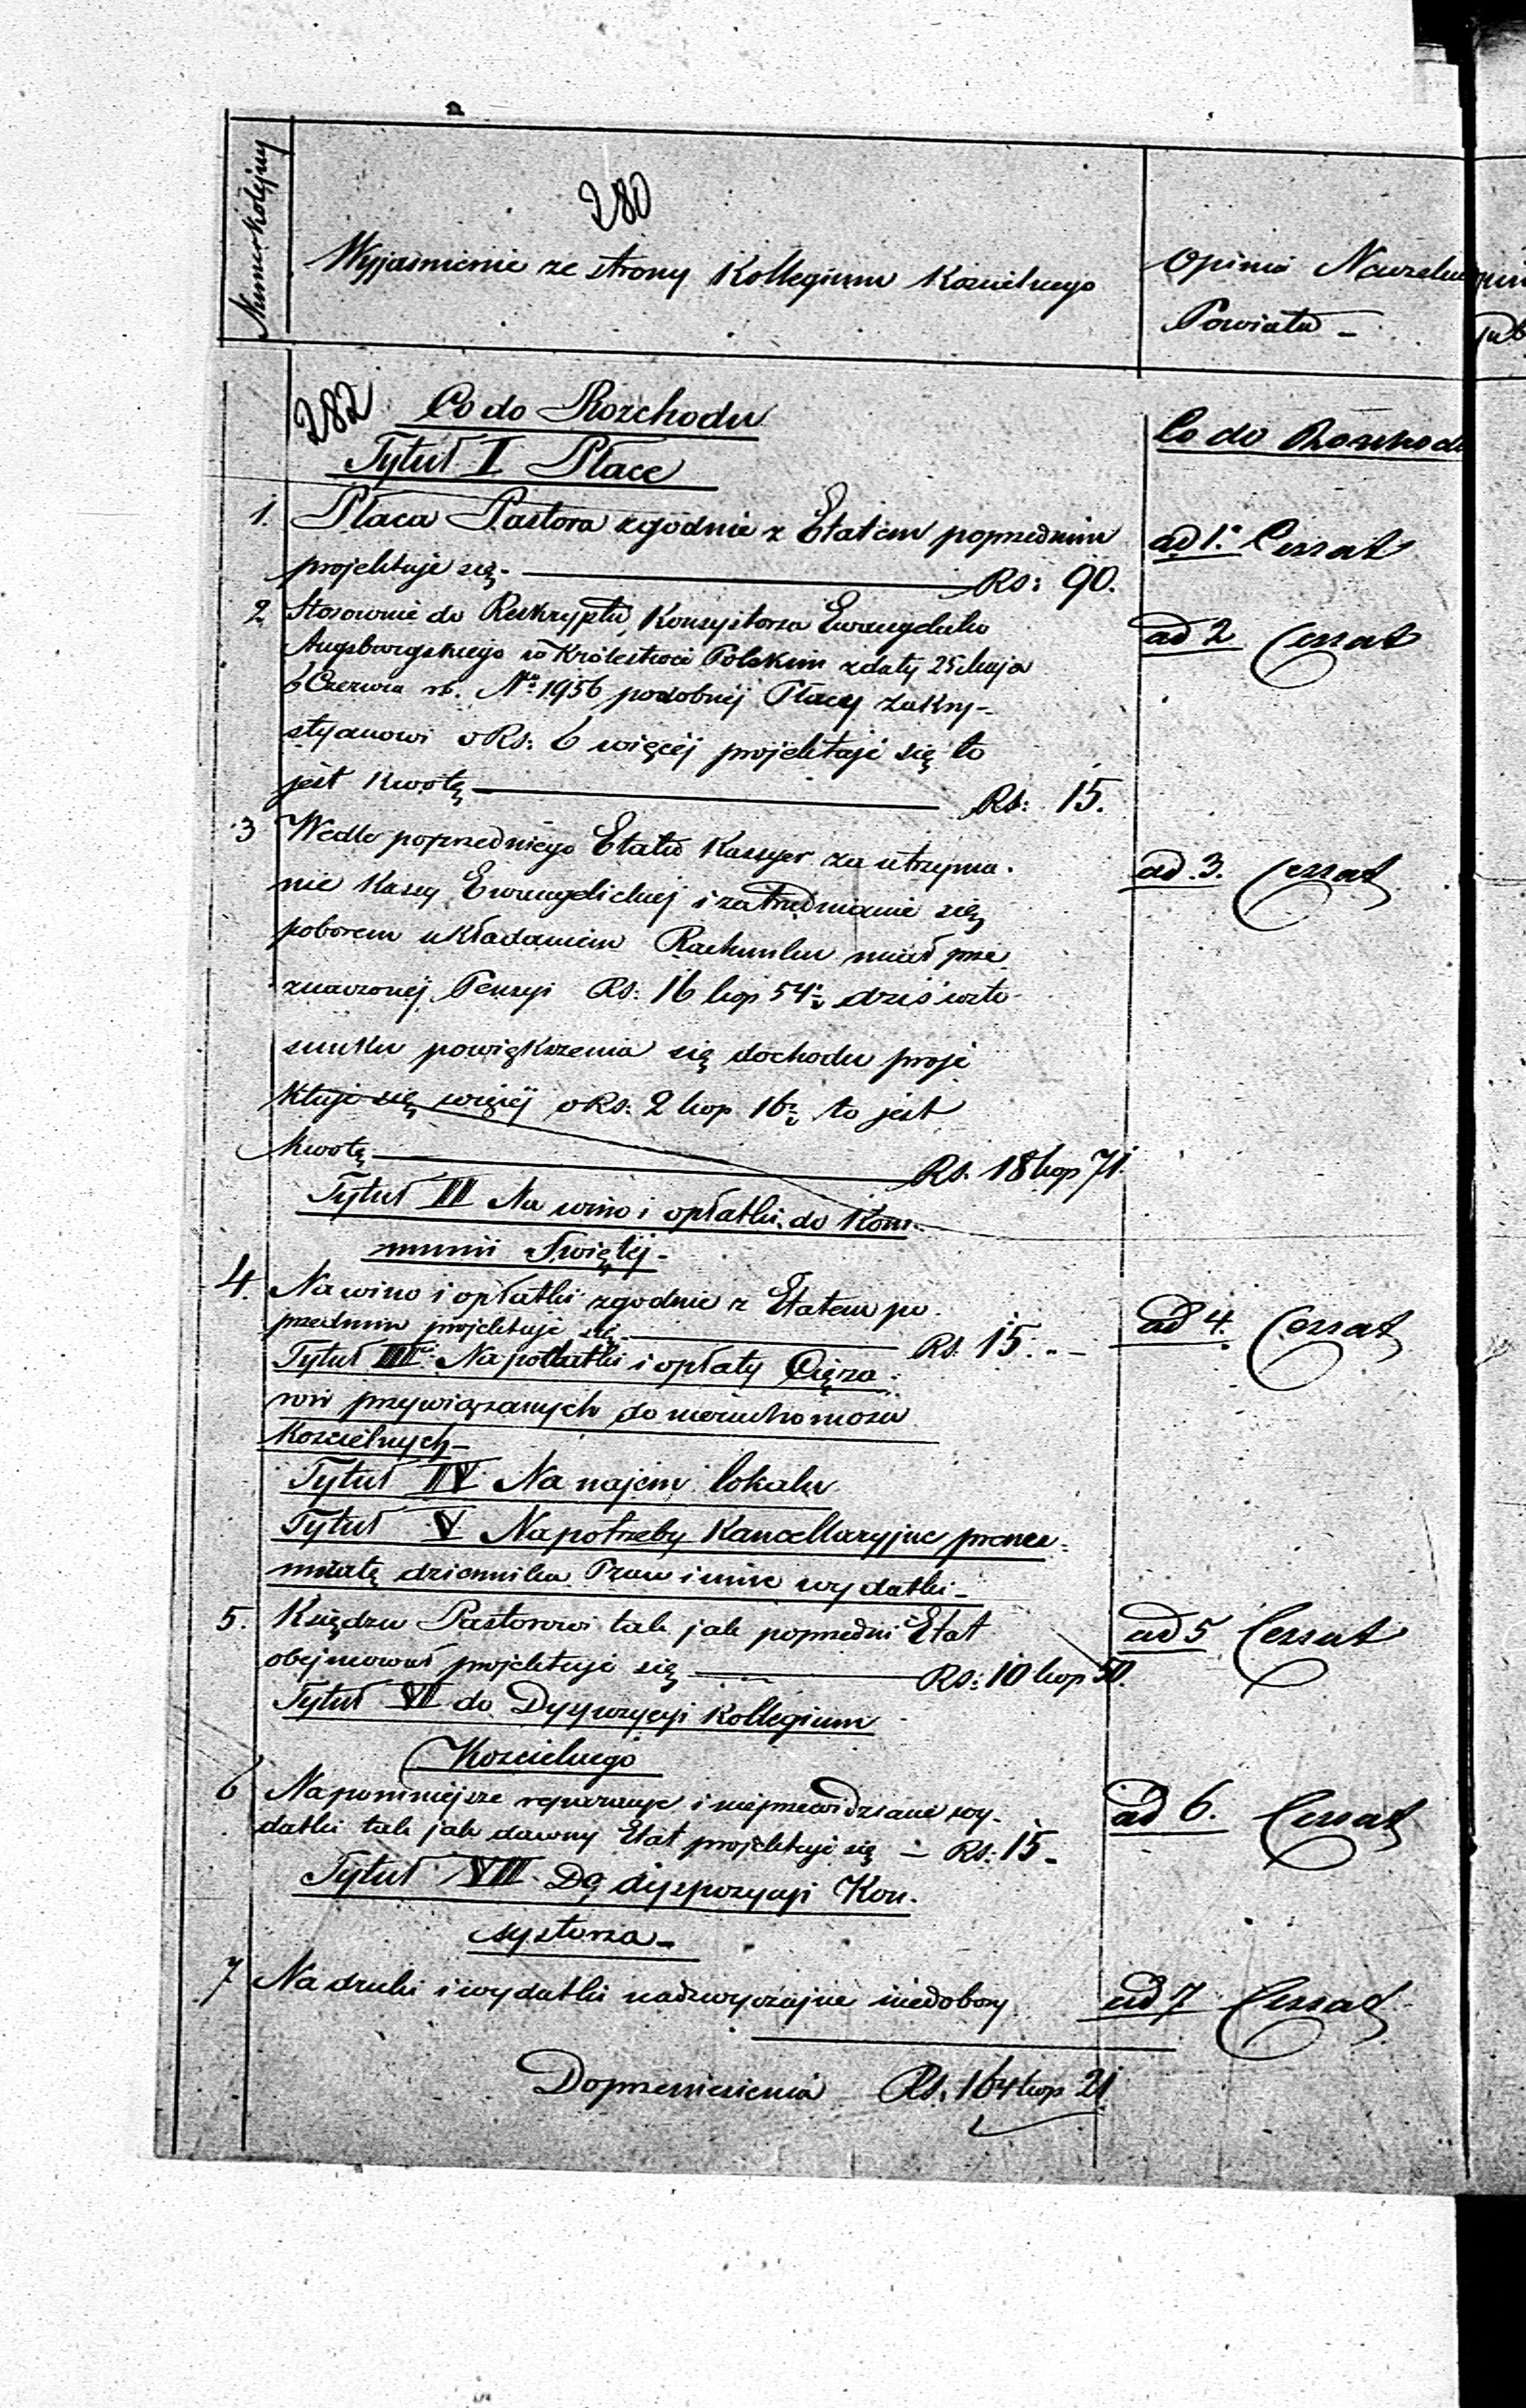 Numer kolejny
280
Wyjasnienie ze strony Kollegium Koscielnego
Opinia Naczelni
Powiatu -
282 Co do Rozchodu
Co do Rozchodu
Tytuł I Płace
1. Płaca Pastora zgodnie z Etatem poprzednim
projektuje się. Rs: 90.
ad 1. Cessat
2 Stosownie do Reskryptu Konsystorza Ewangelicko
Augsburgskiego w Królestwie Polskim z daty 25 Maja
6 Czerwca rb. No 1956 podobnej Płacy Zakry-
styanowi o Rs: 6 więcej projektuje się to
jest kwotę Rs: 15.
ad 2 Cessat
3 Wedle poprzedniego Etatu Kassyer za utrzyma-
nie Kassy Ewangelickiej i zatrudnianie się
poborem układaniem Rachunku miał prze
znaczonej Pensyi Rs: 16 kop 54½ dziś w sto-
sunku powiększenia się dochodu proje
ktuje się więcej o Rs: 2 kop 16½ to jest
kwotę Rs. 18 kop 71.
ad. 3. Cessat
Tytuł II Na wino i opłatki do Kom-
munii Świętej -
4. Na wino i opłatki zgodnie z Etatem po
przednim projektuje się Rs. 15. " -
ad 4. Cessat
Tytuł III Na podatki i opłaty Cięża-
rów przywiązanych do nieruchomosci
Koscielnych -
Tytuł IV Na najem lokalu
Tytuł V Na potrzeby Kancellaryjne prenu-
meratę dziennika Praw i inne wydatki -
5. Księdzu Pastorowi tak jak poprzedni Etat
obejmował projektuje się Rs: 10 kop 50.
ad 5 Cessat
Tytuł VI do Dyspozycyi Kollegium
Koscielnego
6 Na pomniejsze reparacye i nieprzewidziane wy-
datki tak jak dawny Etat projektuje się - Rs: 15 -
ad 6. Cessat
Tytuł VII Do dyspozycyi Kon-
systorza -
7 Na druki i wydatki nadzwyczajne i niedobory
ad 7 Cessat
Do przeniesienia Rs. 164 kop 21